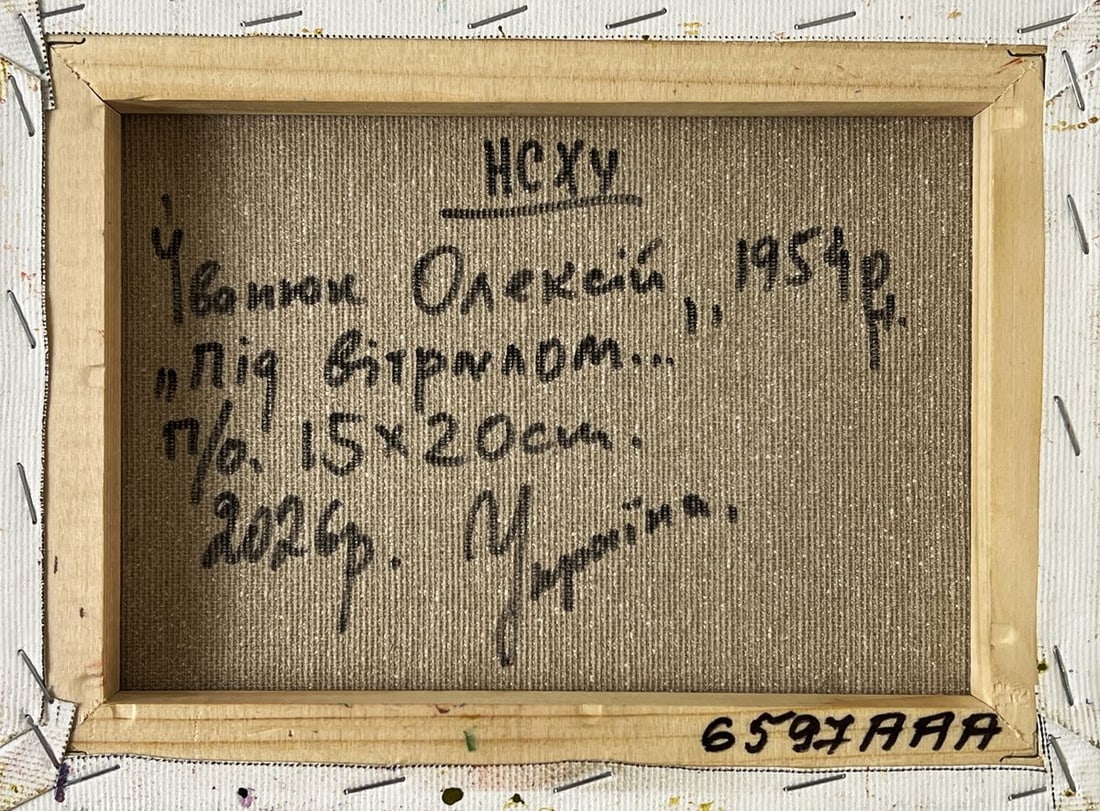 НСХУ
Іванюк Олексій, 1954р.н.
„Під вітрилом..."
п/о. 15х20см.
2026р. Україна.
6597AAA